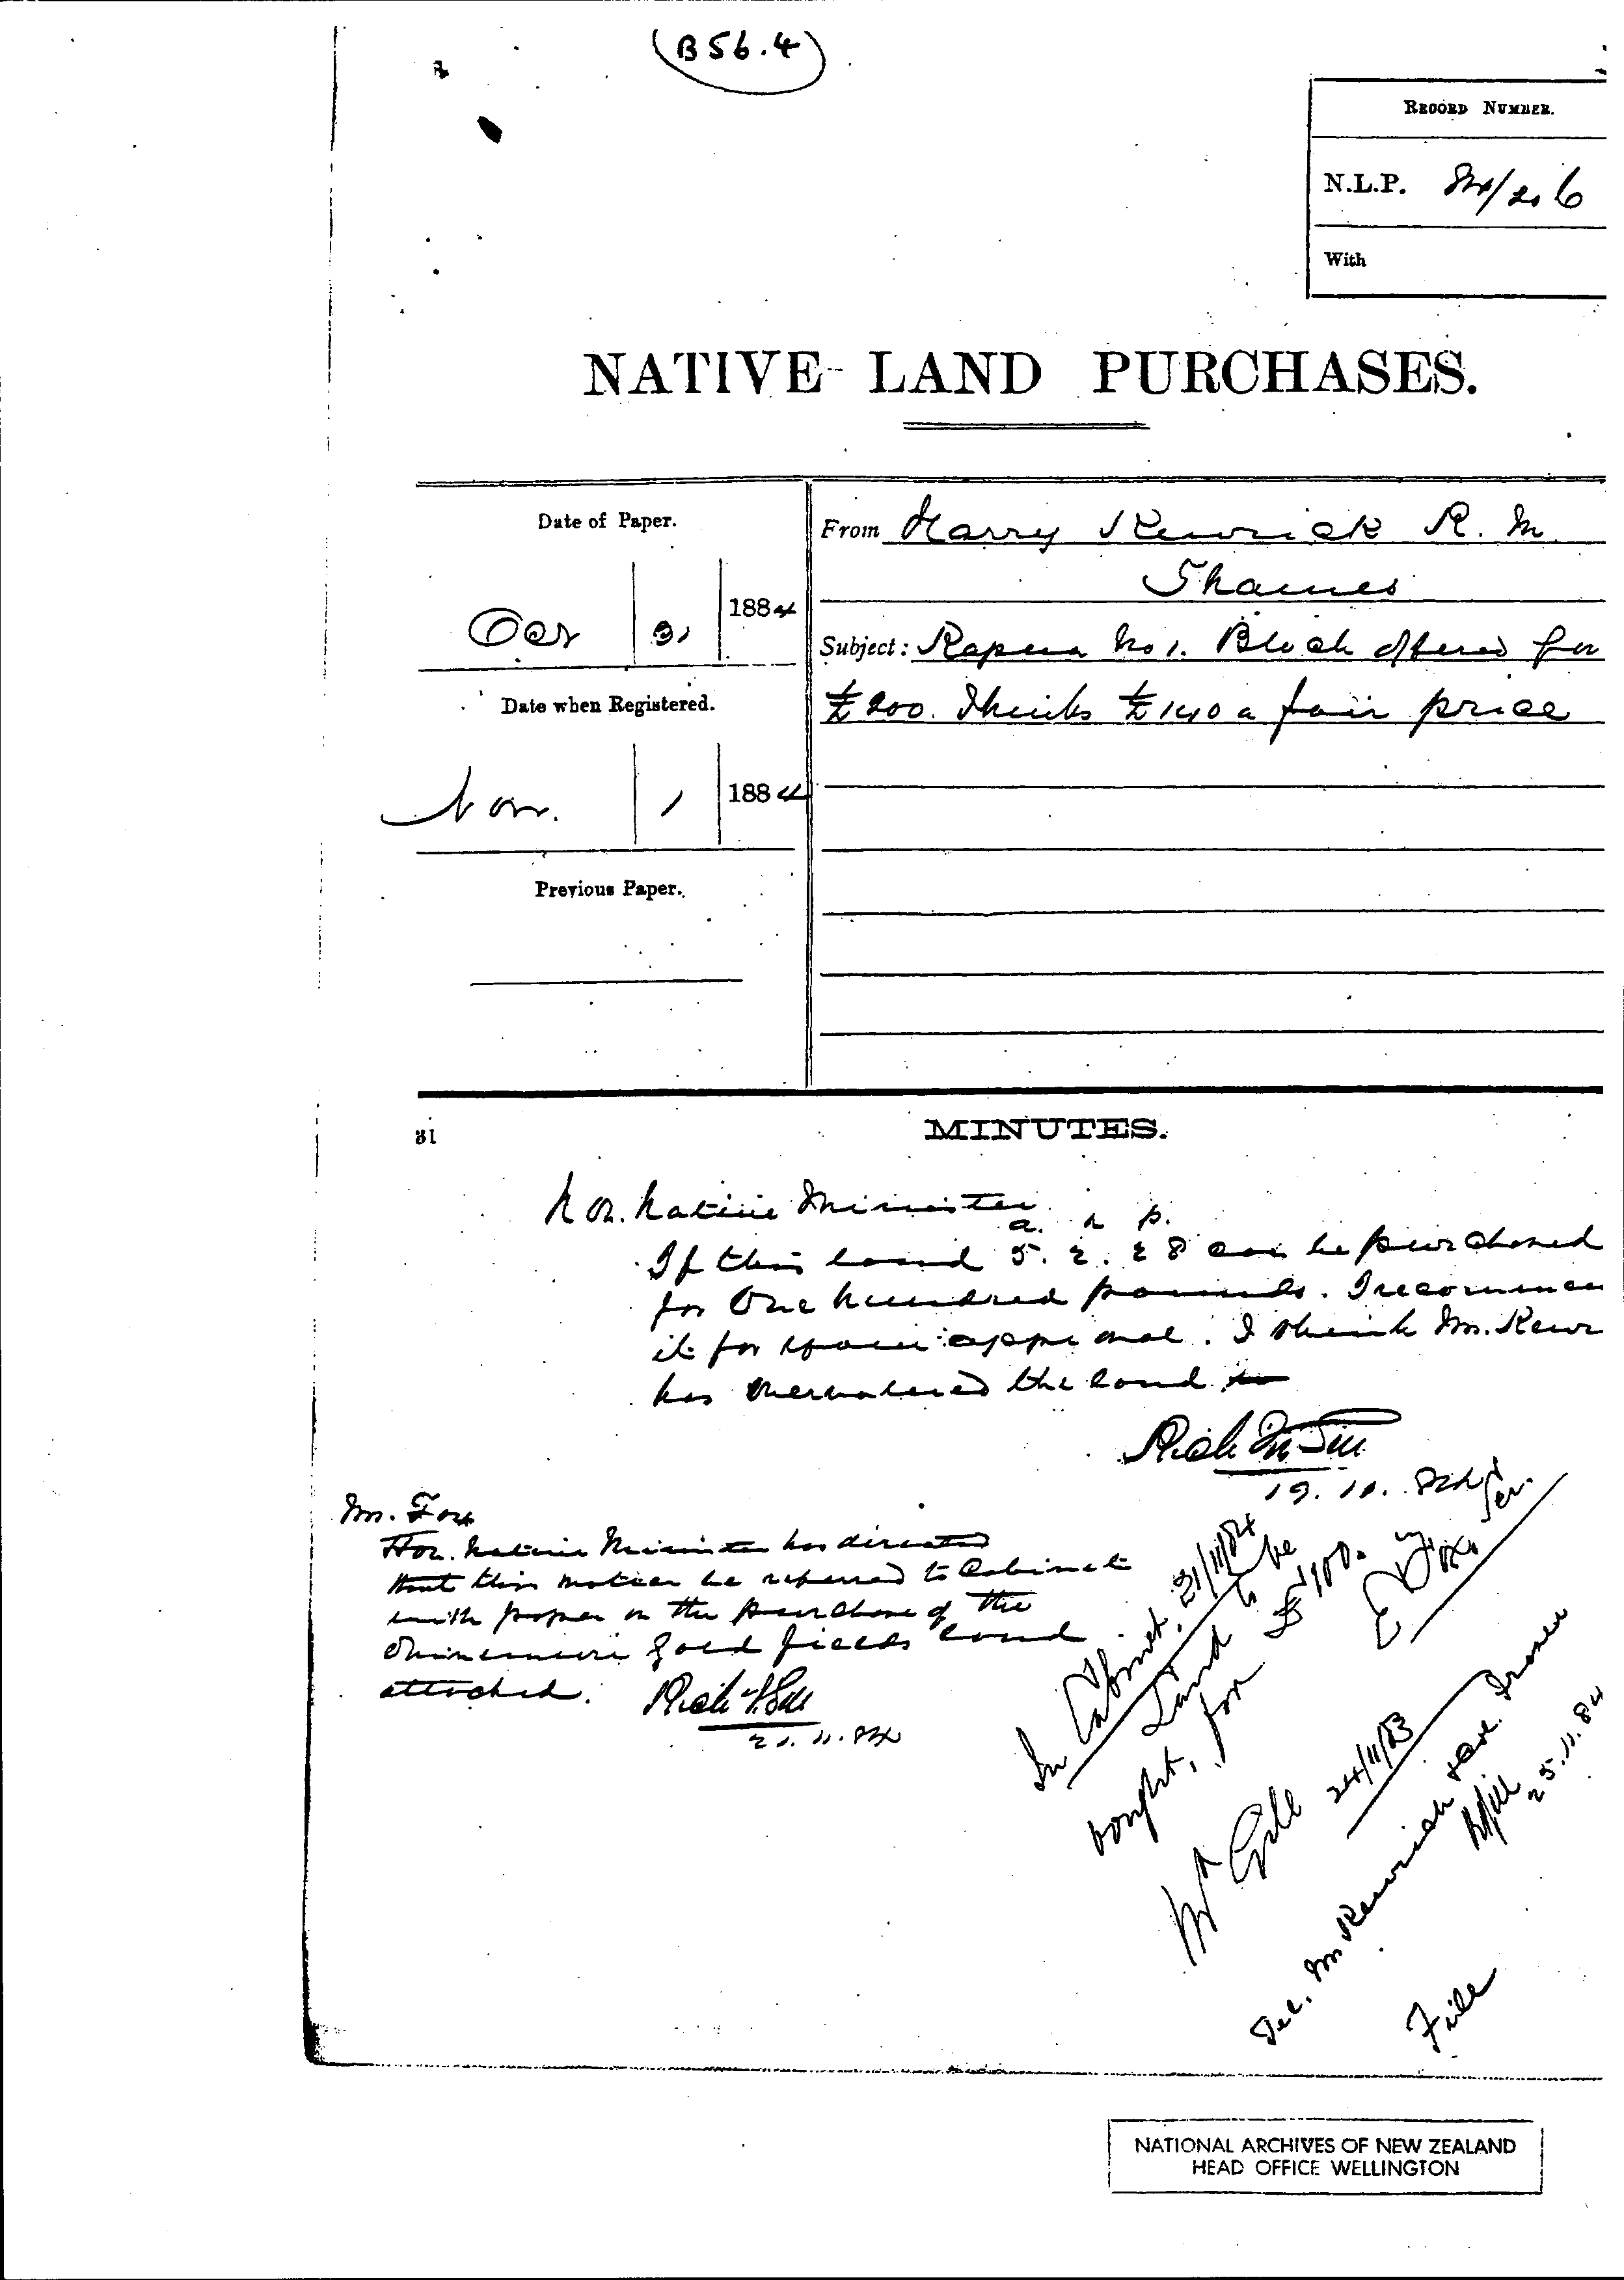 (B 56.4)
RECORD NUMBER.
N.L.P. 84/206
With
NATIVE LAND PURCHASES.
Date of Paper.
Oct 31 1884
Date when Registered.
Nov. 1 1884
Previous Paper.
From Harry Kenrick R. M.
Thames
Subject: No 1. Block offered for
£200. Thinks £140 a fair price
31
MINUTES.
Hon. Native Minister
a. r. p.
If this land 5. 2. 28 can be purchased
for One hundred pounds. I recommen
it for your approval. I think Mr. Kenr
has overvalued the land
19. 11. 84
Mr. Fox
Hon. Native Minister has directed
that this matter be referred to Cabinet
with paper on the purchase of the
Ohinemuri Gold fields land
attached.
21. 11. 84
In Cabinet, 21/11/84
Land to be
bought, for £100.
E Fox Sec.
Mr Gill 24/11/83
Tel. Mr Kenrick
25. 11. 84
File
NATIONAL ARCHIVES OF NEW ZEALAND
HEAD OFFICE WELLINGTON